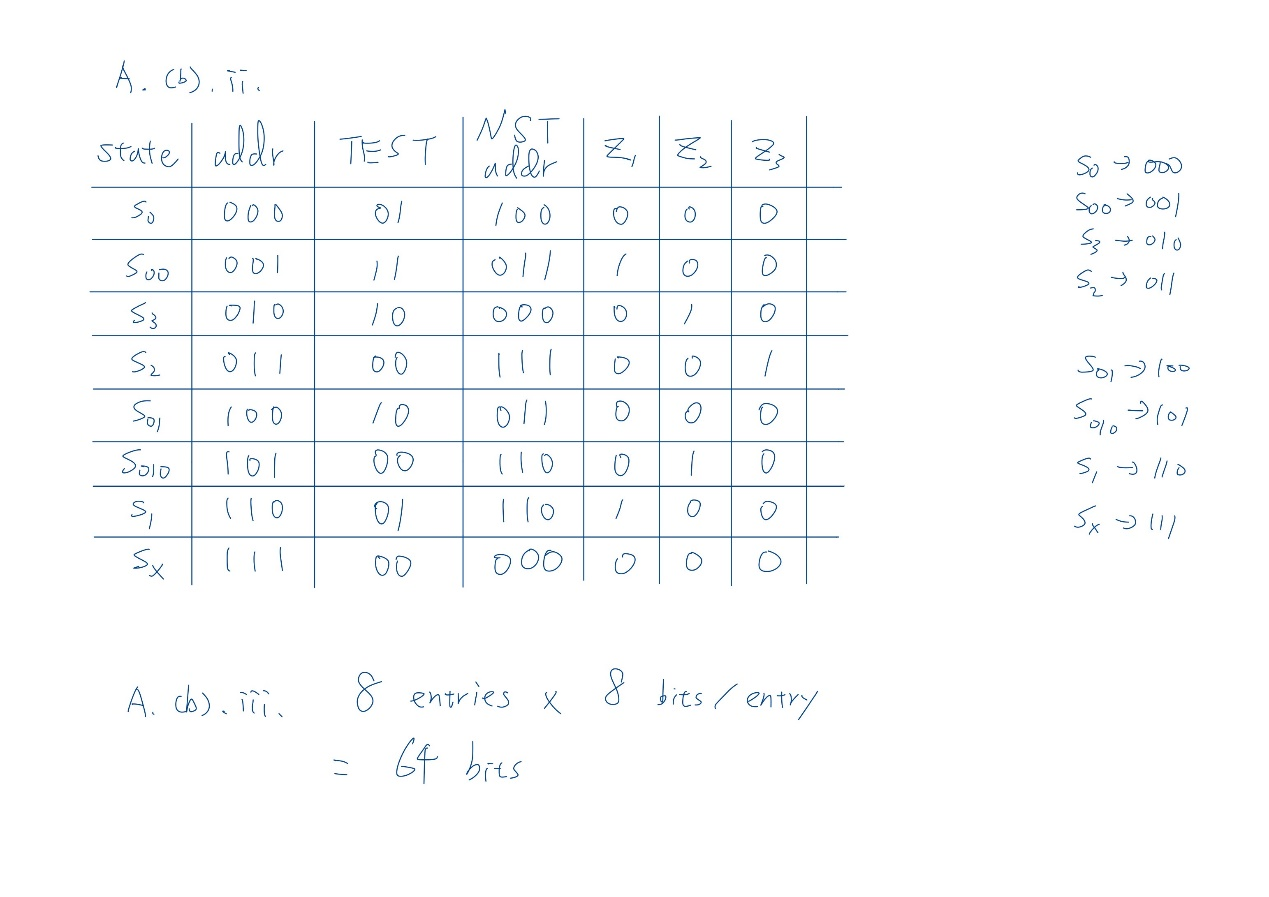 A. (b). ii.
state addr TEST NST addr Z₁ Z₂ Z₃
S₀ 000 01 100 0 0 0
S₀₀ 001 11 011 1 0 0
S₃ 010 10 000 0 1 0
S₂ 011 00 111 0 0 1
S₀₁ 100 10 011 0 0 0
S₀₁₀ 101 00 110 0 1 0
S₁ 110 01 110 1 0 0
Sₓ 111 00 000 0 0 0
S₀ → 000
S₀₀ → 001
S₃ → 010
S₂ → 011
S₀₁ → 100
S₀₁₀ → 101
S₁ → 110
Sₓ → 111
A. (b). iii. 8 entries x 8 bits/entry
= 64 bits